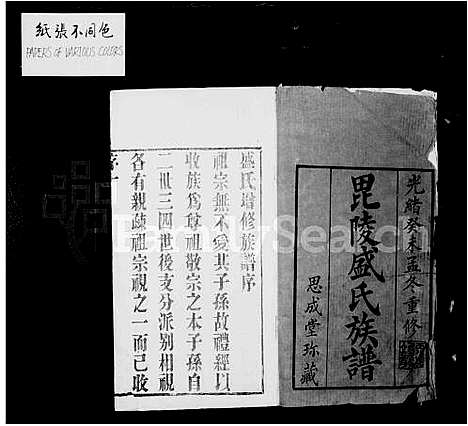 紙張不同色
PAPERS OF VARIOUS COLORS
光緒癸未孟冬重修
毘陵盛氏族譜
思成堂珍藏
盛氏增修族譜序
祖宗無不愛其子孫故禮經以
收族爲尊祖敬宗之本子孫自
二世三四世後支分派別相視
各有親疎祖宗視之一而已收
FamilySearch